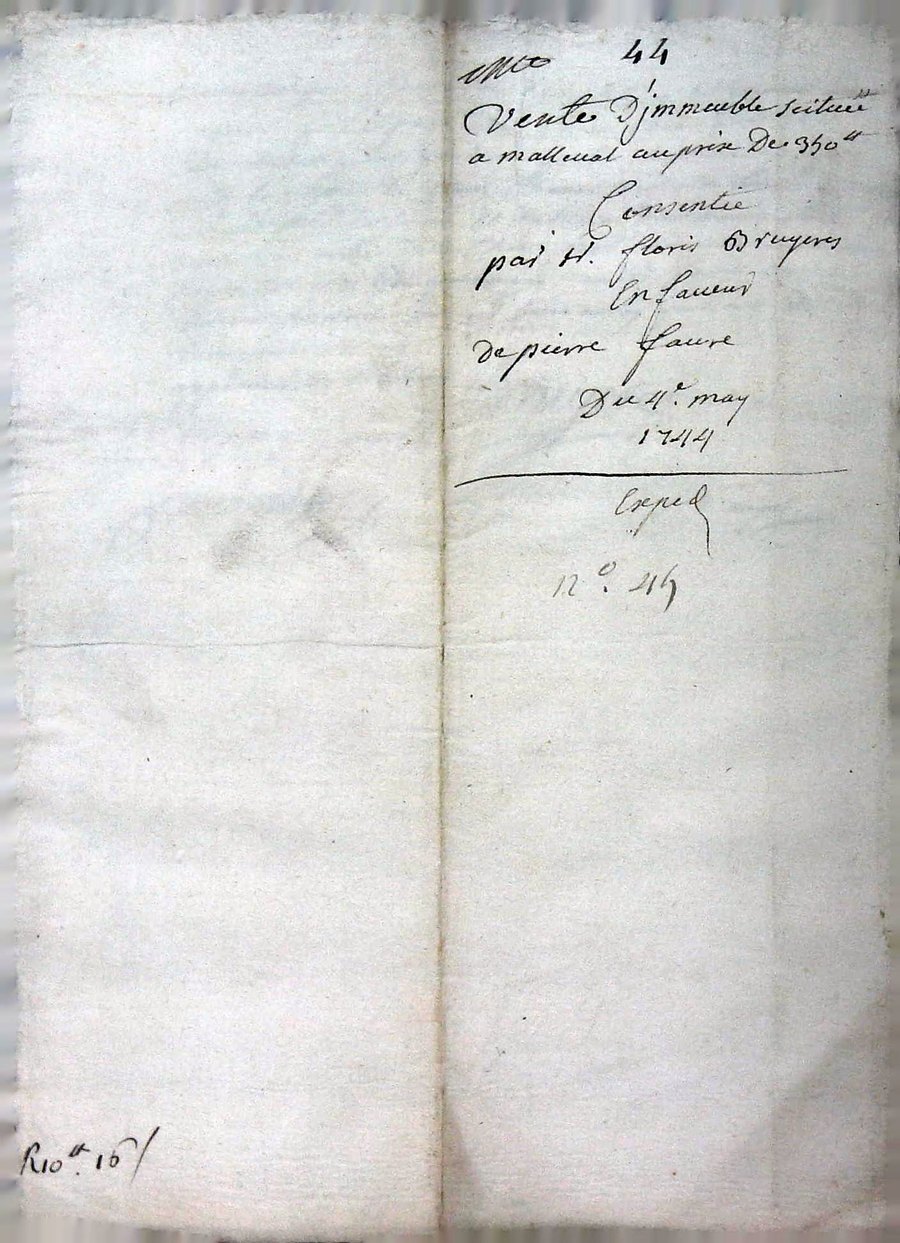 44
Vente D'jmmeuble scitué
a malleval au prix De 350tt
Consentie
par Sr. floris Bruyeres
En faveur
de pierre faure
Du 4e. may
1744
Exped
No. 45
R 10tt. 16